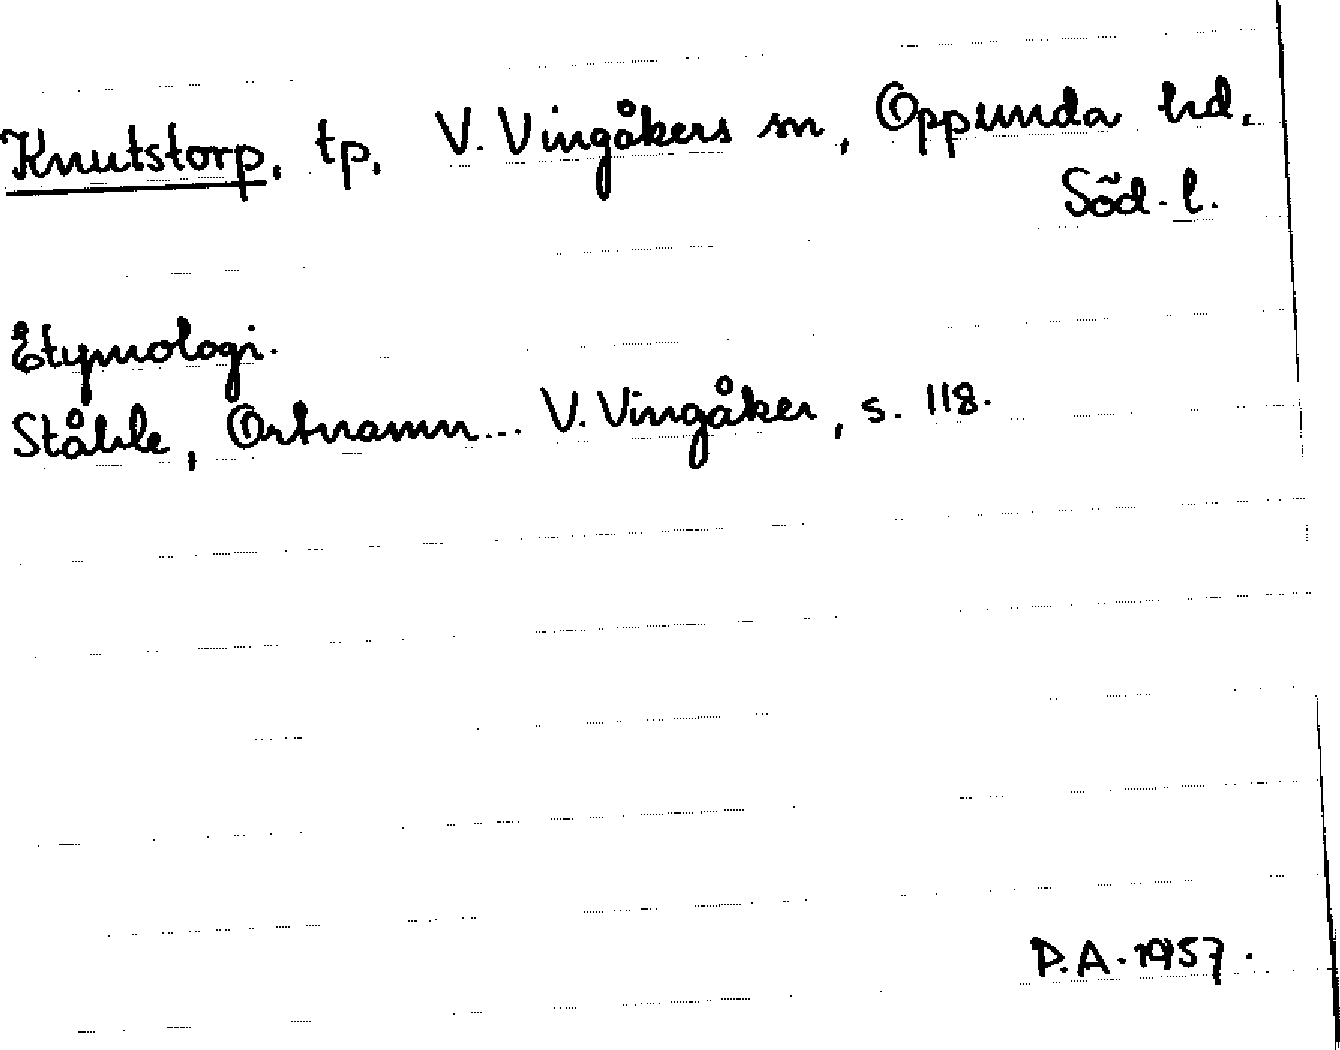 Knutstorp, tp, V. Vingåkers sn, Oppunda hd,
Söd. l.
Etymologi.
Ståhle, Ortnamn... V. Vingåker, s. 118.
P.A. 1957.